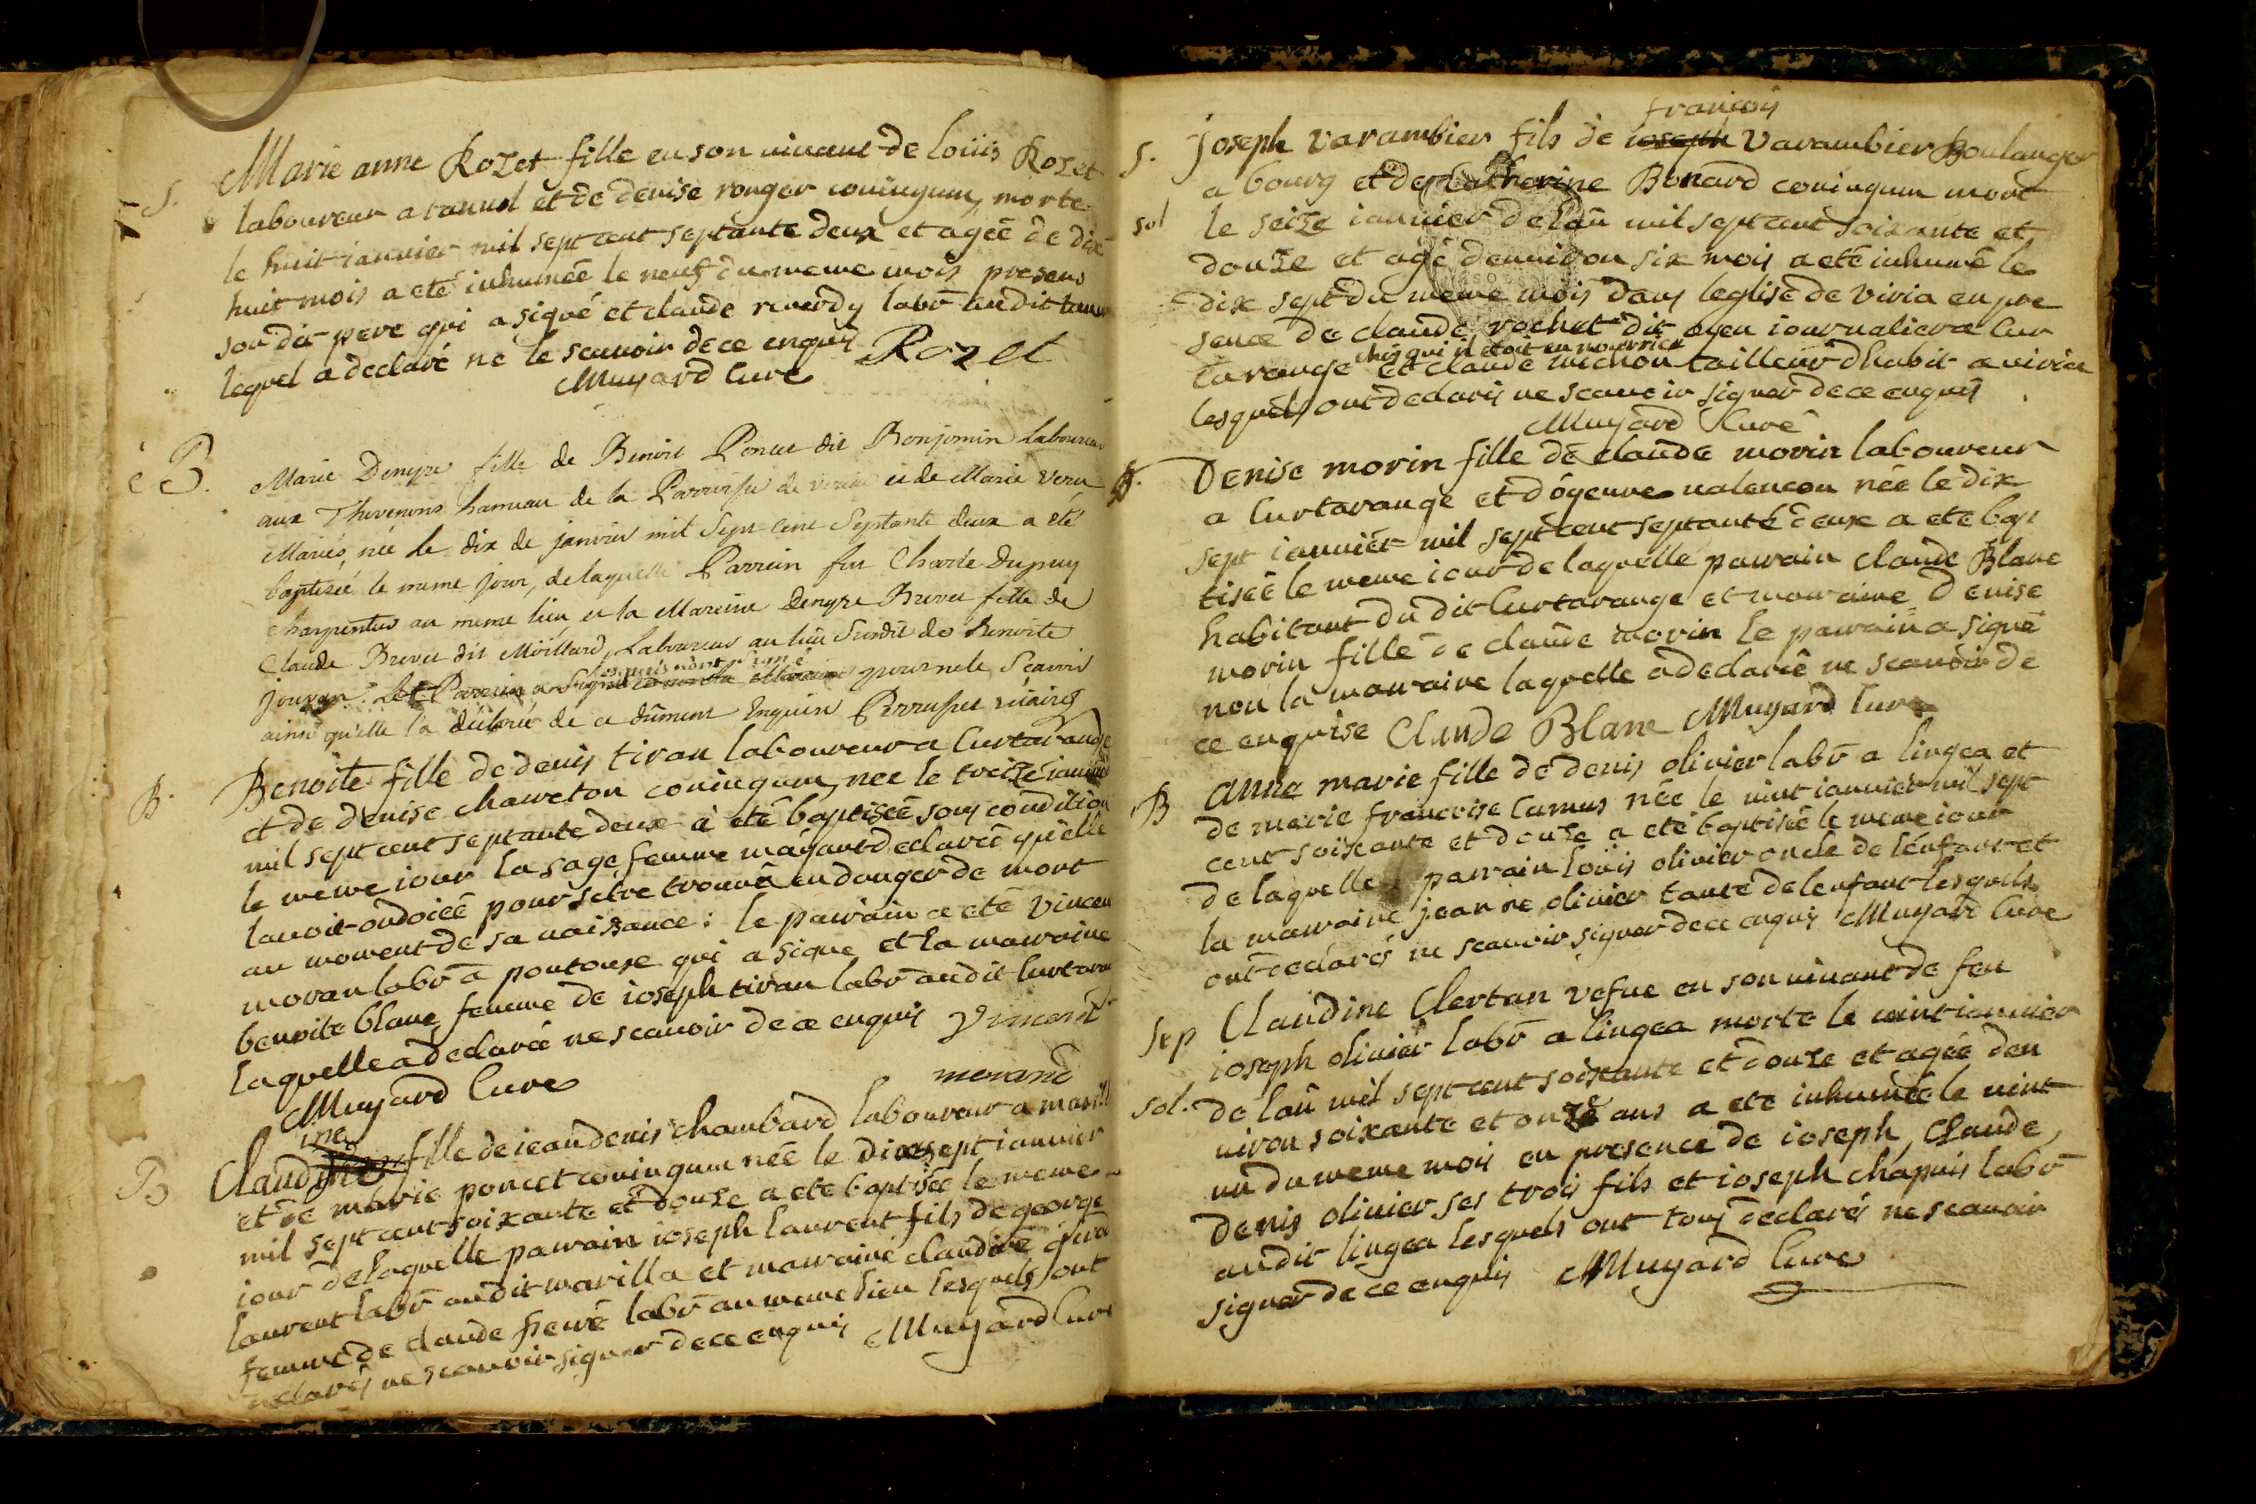 S. Marie anne Rozet fille en son vivant de loüis Rozet
laboureur a tanud et de denise ronger coniugum, morte
le huit ianvier mil sept cent septante deux et agéé de dix
huit mois a eté inhuméé le neuf du meme mois presens
son dit pere qui a signé et claude reverdy labr̄ audit
lequel a declaré ne le scavoir de ce enquis Rozet
Muyard Cure
B. Marie Denyze fille de Benoit Poncet dit Bonjomin Laboureur
aux Thevenons hameau de la Parroisse de et de Marie
Mariés, née le dix de janvier mil Sept cent Septante deux a été
baptisée le meme jour, de laquelle Parrein fut Charle Dupuy
Charpentier au meme lieu et la Mareine Denyze Brevet fille de
Claude Brevet dit Moillard, Laboureur au lieu Susdit de Benoite
pour ne le Scavoir
ainsi qu'elle l'a déclaré de ce dûment Enquise vicaire
B. Benoite fille de denis tiran laboureur a Curtarange
et de denise chaveton coniugum, née le treize ianvier
mil sept cent septante deux à eté baptiséé sous condition
le meme iour la sage femme m'ayant declaréé qu'elle
lavoit ondoiéé pour s'etre trouvé en danger de mort
au moment de sa naissance : le parrain a eté Vincent
moran labr̄ a pontouse qui a signe et la marraine
benoite blanc femme de ioseph tiran labr̄ audit
laquelle a declaréé ne scavoir de ce enquis Vincent
morand
Muyard Cure
ine
B Claud fille de iean denis chambard laboureur a
et de marie poncet coniugum néé le dix sept ianvier
mil sept cent soixante et douze a eté baptiséé le meme
iour de laquelle parrain ioseph laurent fils de george
laurent labr̄ audit marilla et marraine claudine
femme de claude labr̄ au meme lieu lesquels ont
declarés ne scavoir signer de ce enquis Muyard Cure
francois
S. joseph varambier fils de ioseph varambier Boulanger
a bourg et de Catherine Bonard coniugum mort
sol le seize ianvier de l'an mil sept cent soixante et
douze et agé d'environ six mois a eté inhumé le
dix sept du meme mois dans leglise de viria en pre
sence de claude rochet dit iournalier a Cur
chés qui il etoit en nourrice
tarange et claude michon tailleur dhabit a viria
lesquels ont declarés ne scavoir signer de ce enquis
Muyard Curé
B. Denise morin fille de claude morin laboureur
a Curtarange et d'ögenne valencon néé le dix
sept ianvier mil sept cent septante deux a eté bap
tiséé le meme iour de laquelle parrain claude Blanc
habitant du dit Curtarange et marraine Denise
morin fille de claude morin le parrain a signé
non la marraine laquelle a declaréé ne scavoir de
ce enquise Claude Blanc Muyard Cure
B Anne marie fille de denis olivier labr̄ a lingea et
de marie francoise Camus née le vint ianvier mil sept
cent soixante et douze a eté baptiséé le meme iour
de laquelle parrain loüis olivier oncle de l'enfant et
la marraine jeanne olivier tante de lenfant lesquels
ont declarés ne scavoir signer de ce enquis Muyard Cure
Sep Claudine Clertan vefue en son vivant de feu
ioseph olivier labr̄ a lingea morte le vint ianvier
sol. de l'an mil sept cent soixante et douze et agéé d'en
viron soixante et onze ans a eté inhuméé le vint
un du meme mois en presence de ioseph, Claude,
Denis olivier ses trois fils et ioseph chapuis labr̄
audit lingea lesquels ont tous declarés ne scavoir
signer de ce enquis Muyard Cure